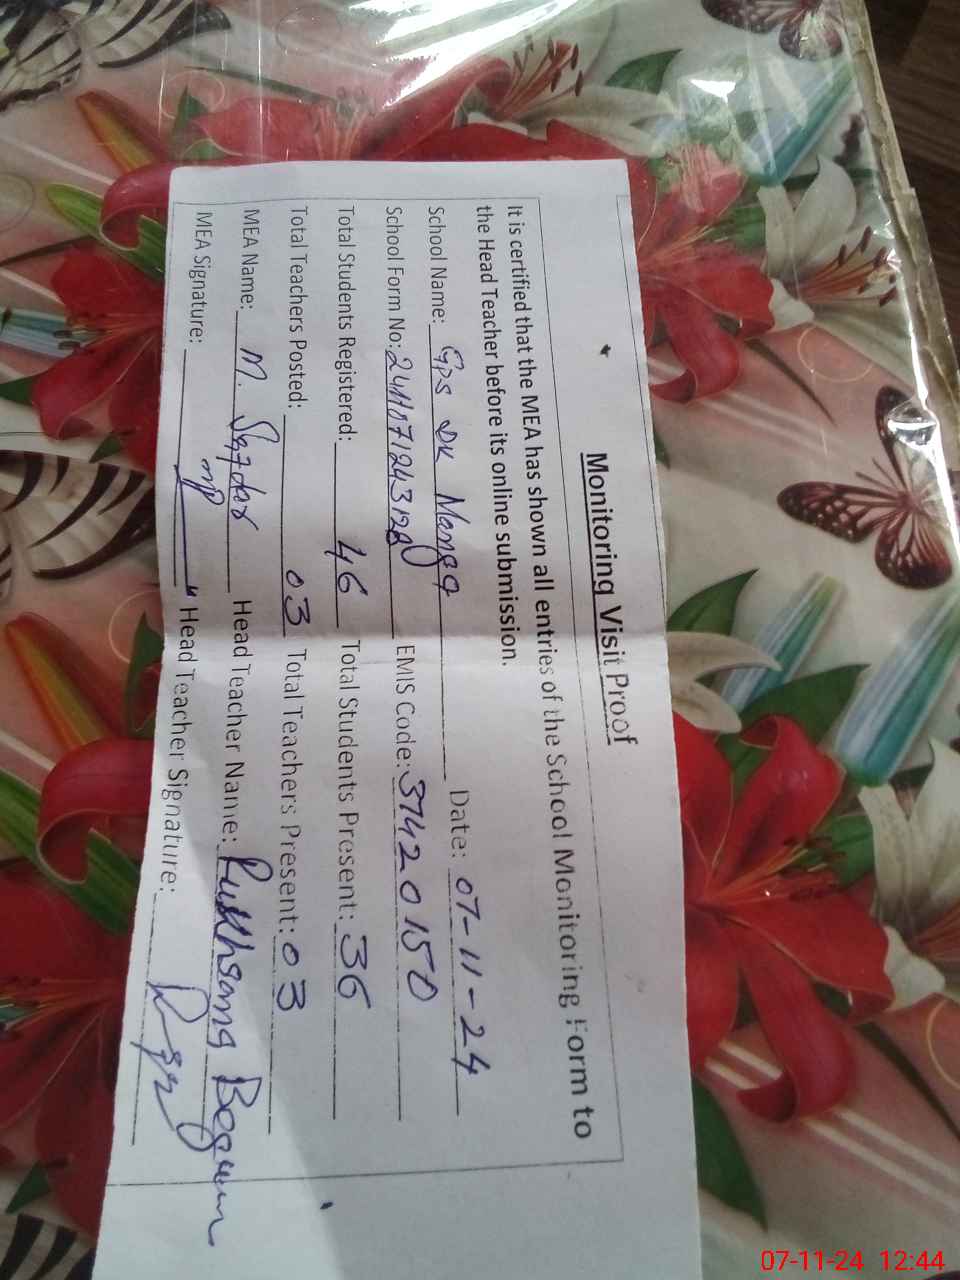 Monitoring Visit Proof
It is certified that the MEA has shown all entries of the School Monitoring Form to
the Head Teacher before its online submission.
School Name: GPS DK Manga Date: 07-11-24
School Form No: EMIS Code: 37420150
Total Students Registered: 46 Total Students Present: 36
Total Teachers Posted: 03 Total Teachers Present: 03
MEA Name: M. Safdar Head Teacher Name: Rukhsana Begum
MEA Signature: Head Teacher Signature:
07-11-24 12:44